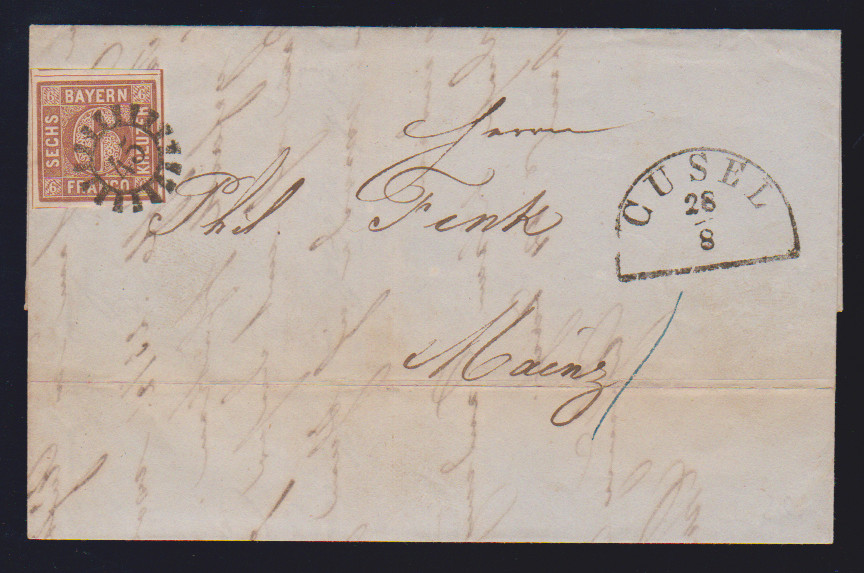 BAYERN
SECHS
KREUZER
FRANCO
6
6
6
6
6
Herrn
Phil. Fink
Mainz
CUSEL
28
8